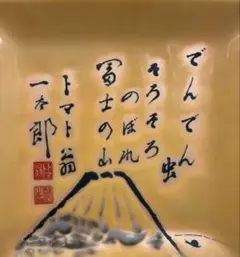 でんでん虫
そろそろ
のぼれ
冨士の山
トマト翁
一本郎